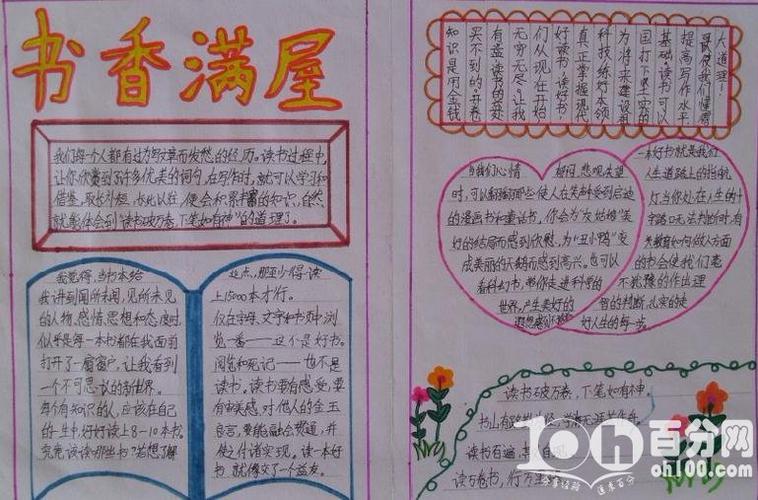 书香满屋
我们每个人都有过为写文章而发愁的经历。读书过程中,
让你欣赏到了许多优美的词句,在写作时,就可以学习和
借鉴,取长补短,长此以往,便会积累丰富的知识,自然
就能体会到“读书破万卷,下笔如有神”的道理了。
我觉得,当书本给
我讲到闻所未闻,见所未见
的人物、感情、思想和态度时,
似乎是每一本书都在我面前
打开了一扇窗户,让我看到
一个不可思议的新世界。
每个有知识的人,应该在自己
的一生中,好好读上8-10本书。
究竟该读哪些书?若想了解
这点,那至少得读
上15000本才行。
仅在字母、文字和书页中浏
览一番——这不是读书。
阅览和死记——也不是
读书。读书要有感受,要
有审美感,对他人的金玉
良言,要能融会贯通,并
使之付诸实现。读一本好
书,就像交了一个益友。
大道理!
哥使我们懂得
提高写作水平
基础。读书可以
国打下坚实的
为将来建设祖
科技,练好本领
真正掌握现代
好读书,读好书!
们从现在开始
无穷无尽。让我
有益,读书的益处
买不到的。开卷
知识是用金钱
当我们心情 郁闷,悲观失望
时,可以翻翻那些使人在笑料中受到启迪
的漫画书和童话书,你会为“灰姑娘”美
好的结局而感到欣慰,为“丑小鸭”变
成美丽的天鹅而感到高兴。也可以
看科幻书,带你走进科学的
世界,产生美好的
遐想
一本好书就是我们
人生道路上的指航
灯,当你处在人生的十
字路口无法判断时,有
关教育如何做人方面
的书会使我们毫
不犹豫的作出理
智的判断,扎实的走
好人生的每一步。
读书破万卷,下笔如有神。
书山有路
读书百遍,其
读万卷书,行万里
百分网
oh100.com